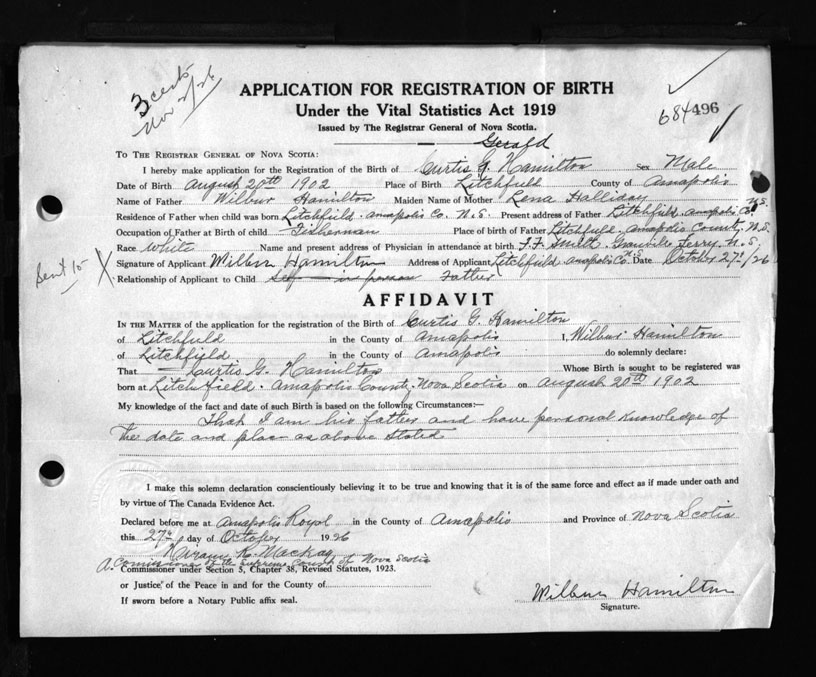 3 certs
Nov 2/26
APPLICATION FOR REGISTRATION OF BIRTH
Under the Vital Statistics Act 1919
Issued by The Registrar General of Nova Scotia.
684496
Gerald
TO THE REGISTRAR GENERAL OF NOVA SCOTIA:
I hereby make application for the Registration of the Birth of Curtis G. Hamilton Sex Male
Date of Birth August 20th 1902 Place of Birth Litchfield County of Annapolis
Name of Father Wilbur Hamilton Maiden Name of Mother Lena Halliday
Residence of Father when child was born Litchfield Annapolis Co. N.S. Present address of Father Litchfield Annapolis Co. N.S.
Occupation of Father at Birth of child Fisherman Place of birth of Father Litchfield Annapolis County, N.S.
Race White Name and present address of Physician in attendance at birth F.F. Smith Granville Ferry, N.S.
Signature of Applicant Wilbur Hamilton Address of Applicant Litchfield Annapolis Co. N.S. Date October 27th/26
Relationship of Applicant to Child Self in person Father
AFFIDAVIT
IN THE MATTER of the application for the registration of the Birth of Curtis G. Hamilton
of Litchfield in the County of Annapolis I, Wilbur Hamilton
of Litchfield in the County of Annapolis do solemnly declare:
That Curtis G. Hamilton Whose Birth is sought to be registered was
born at Litchfield Annapolis County Nova Scotia on August 20th 1902
My knowledge of the fact and date of such Birth is based on the following Circumstances:—
That I am his father and have personal knowledge of
the date and place as above stated
I make this solemn declaration conscientiously believing it to be true and knowing that it is of the same force and effect as if made under oath and
by virtue of The Canada Evidence Act.
Declared before me at Annapolis Royal in the County of Annapolis and Province of Nova Scotia
this 27th day of October 1926
K. Mackay
A Commissioner of the Supreme Court of Nova Scotia
Commissioner under Section 5, Chapter 38, Revised Statutes, 1923.
or Justice of the Peace in and for the County of
If sworn before a Notary Public affix seal.
Wilbur Hamilton
Signature.